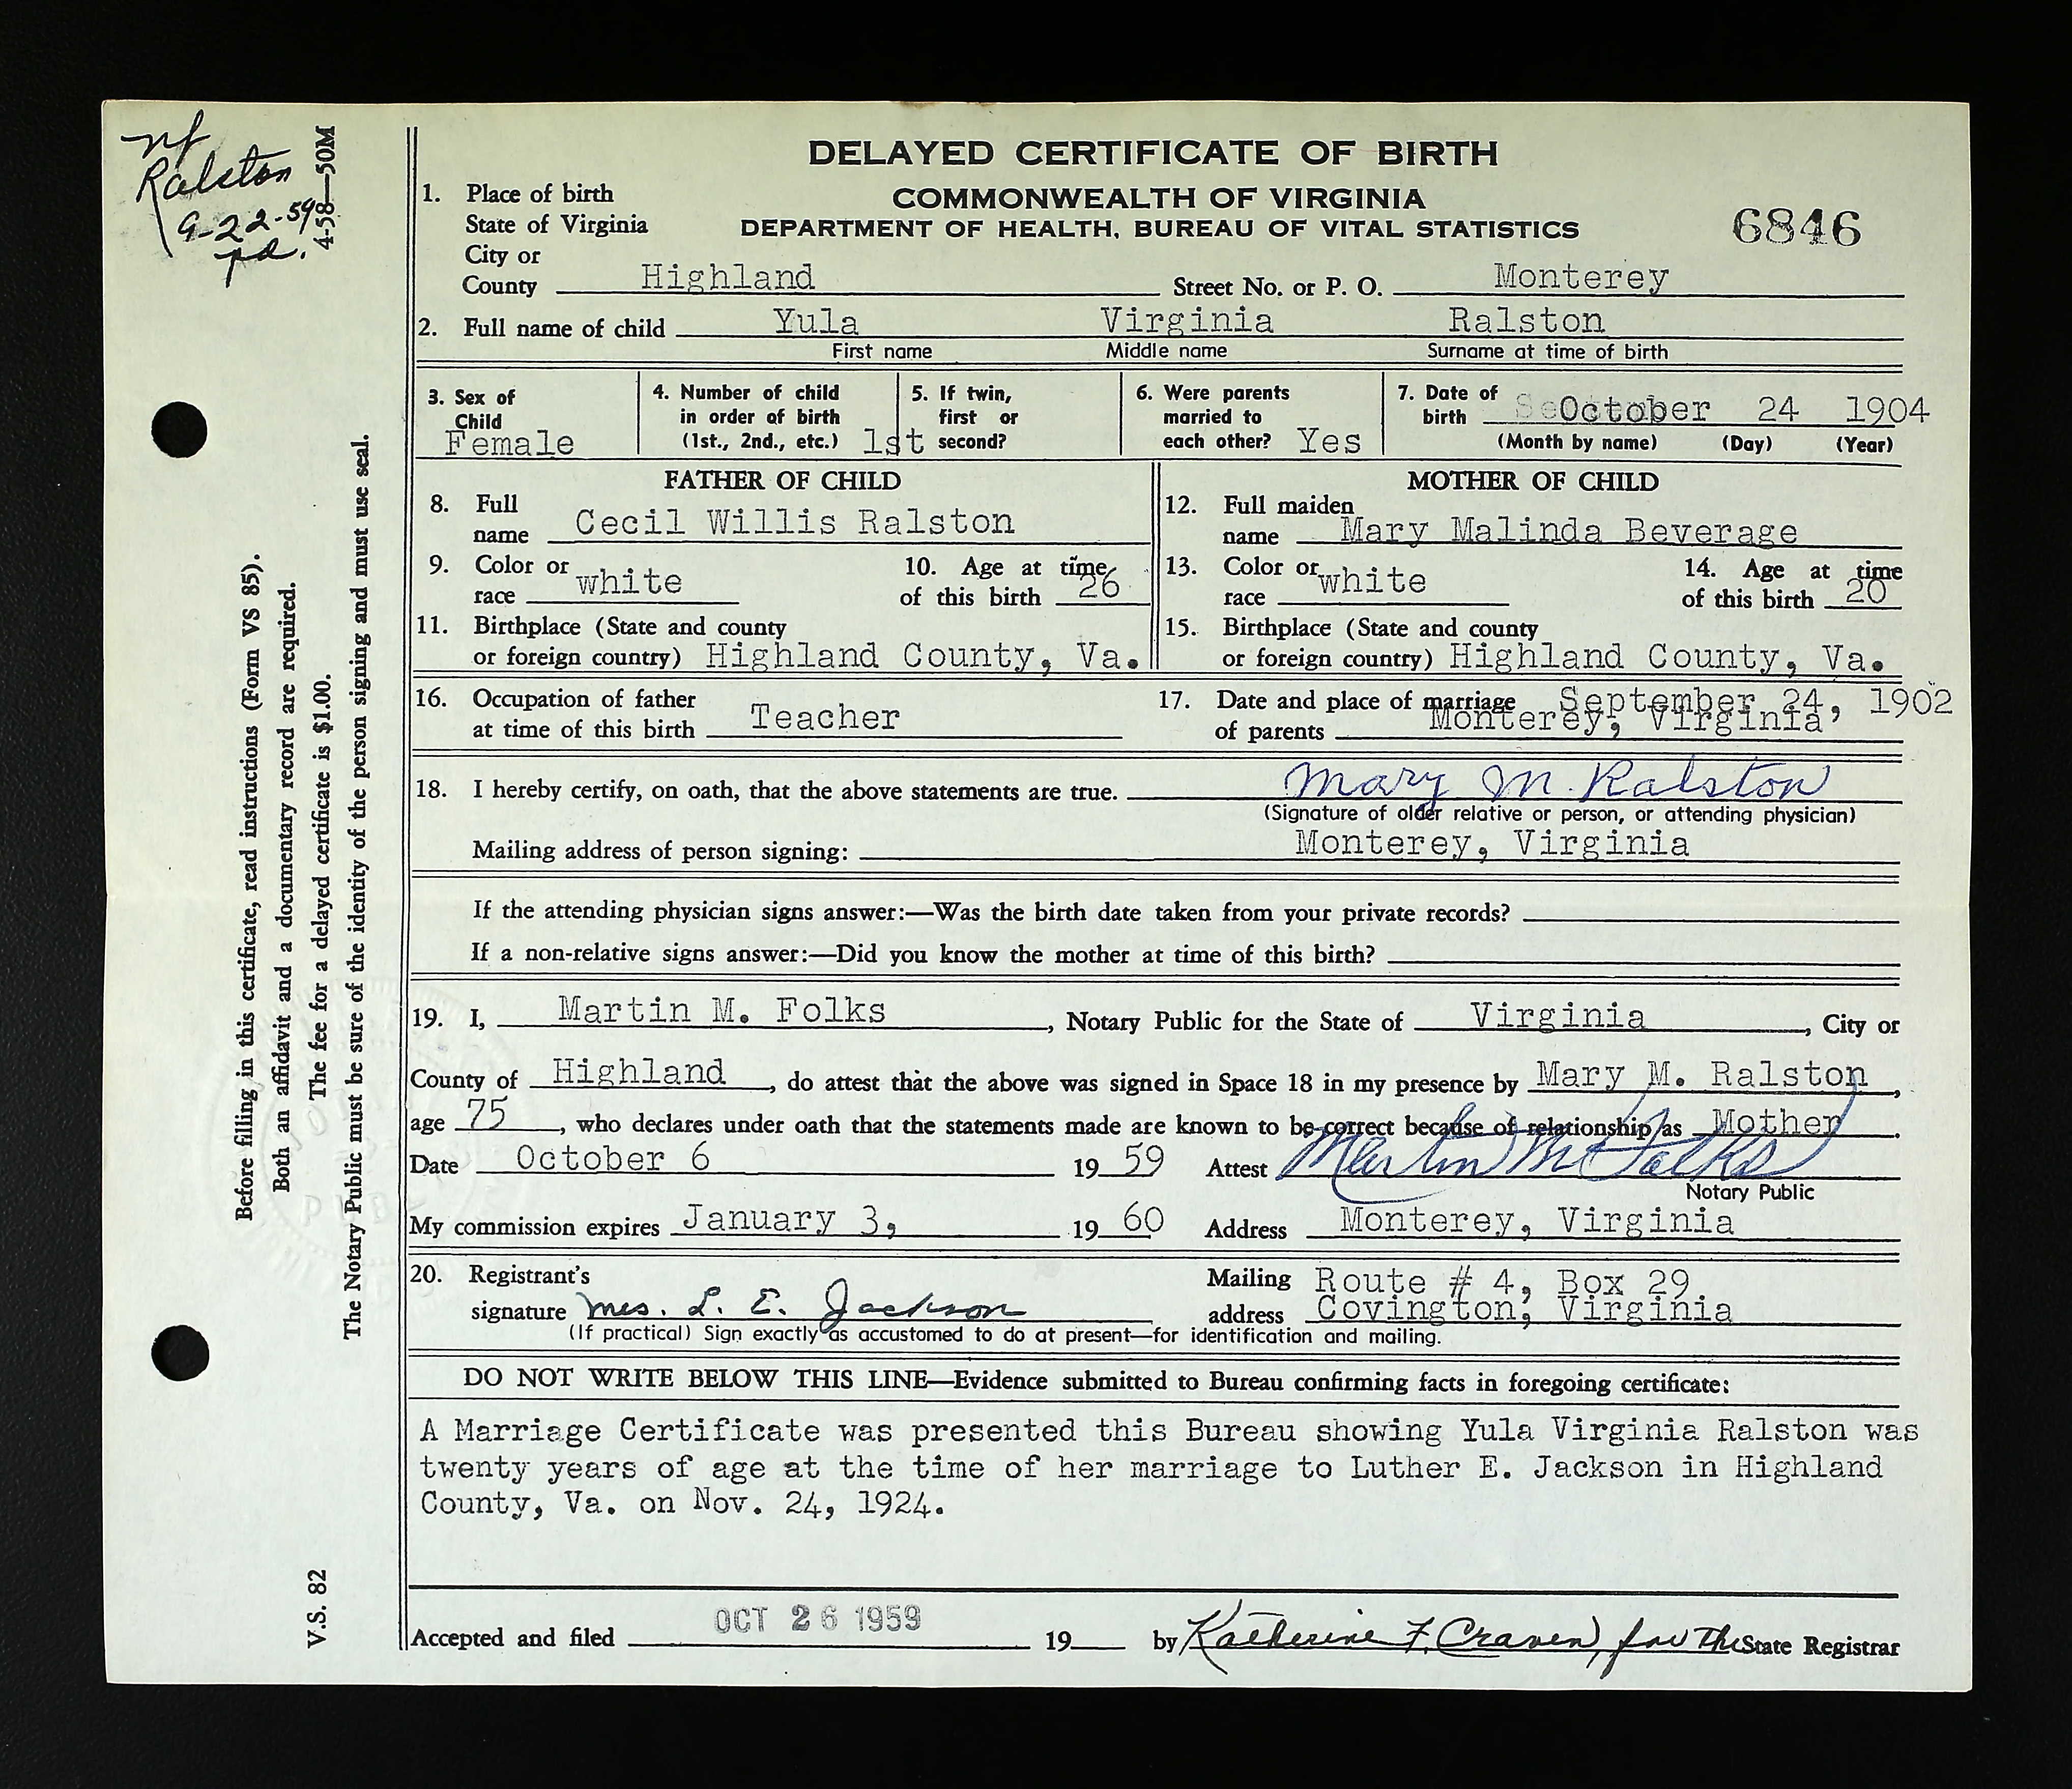 nf
Ralston
9-22-59
pd.
4-58—50M
DELAYED CERTIFICATE OF BIRTH
COMMONWEALTH OF VIRGINIA
DEPARTMENT OF HEALTH, BUREAU OF VITAL STATISTICS
6846
1. Place of birth
State of Virginia
City or
County Highland Street No. or P. O. Monterey
2. Full name of child Yula Virginia Ralston
First name Middle name Surname at time of birth
3. Sex of Child Female
4. Number of child in order of birth (1st., 2nd., etc.) 1st
5. If twin, first or second?
6. Were parents married to each other? Yes
7. Date of birth October 24 1904
(Month by name) (Day) (Year)
FATHER OF CHILD
8. Full name Cecil Willis Ralston
9. Color or race white
10. Age at time of this birth 26
11. Birthplace (State and county
or foreign country) Highland County, Va.
MOTHER OF CHILD
12. Full maiden name Mary Malinda Beverage
13. Color or race white
14. Age at time of this birth 20
15. Birthplace (State and county
or foreign country) Highland County, Va.
16. Occupation of father
at time of this birth Teacher
17. Date and place of marriage September 24, 1902
of parents Monterey, Virginia
18. I hereby certify, on oath, that the above statements are true. Mary M. Ralston
(Signature of older relative or person, or attending physician)
Mailing address of person signing: Monterey, Virginia
If the attending physician signs answer:—Was the birth date taken from your private records?
If a non-relative signs answer:—Did you know the mother at time of this birth?
19. I, Martin M. Folks, Notary Public for the State of Virginia, City or
County of Highland, do attest that the above was signed in Space 18 in my presence by Mary M. Ralston,
age 75, who declares under oath that the statements made are known to be correct because of relationship as Mother.
Date October 6 1959 Attest Martin M Folks
Notary Public
My commission expires January 3, 1960 Address Monterey, Virginia
20. Registrant's
signature Mrs. L. E. Jackson
Mailing address Route # 4, Box 29
Covington, Virginia
(If practical) Sign exactly as accustomed to do at present—for identification and mailing.
DO NOT WRITE BELOW THIS LINE—Evidence submitted to Bureau confirming facts in foregoing certificate:
A Marriage Certificate was presented this Bureau showing Yula Virginia Ralston was
twenty years of age at the time of her marriage to Luther E. Jackson in Highland
County, Va. on Nov. 24, 1924.
Accepted and filed OCT 26 1959 19 by Katherine F. Craven, for the State Registrar
Before filling in this certificate, read instructions (Form VS 85).
Both an affidavit and a documentary record are required.
The fee for a delayed certificate is $1.00.
The Notary Public must be sure of the identity of the person signing and must use seal.
V.S. 82